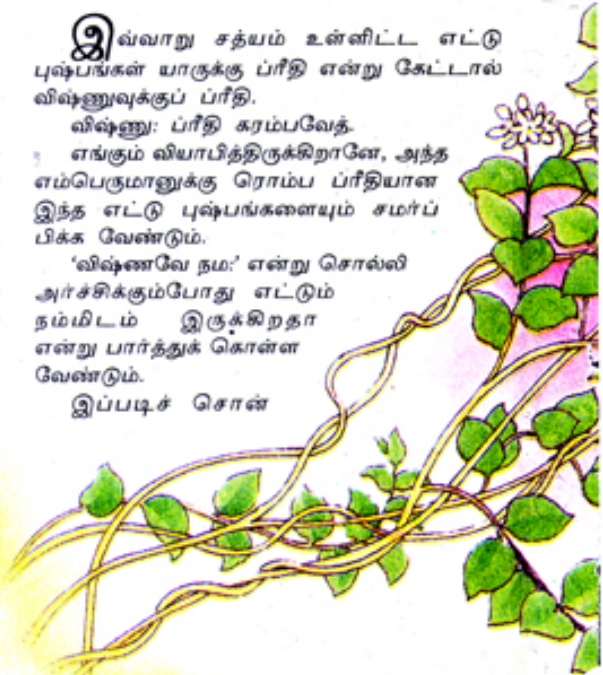 இவ்வாறு சத்யம் உள்ளிட்ட எட்டு
புஷ்பங்கள் யாருக்கு ப்ரீதி என்று கேட்டால்
விஷ்ணுவுக்குப் ப்ரீதி.
விஷ்ணு: ப்ரீதி கரம்பவேத்.
எங்கும் வியாபித்திருக்கிறானே, அந்த
எம்பெருமானுக்கு ரொம்ப ப்ரீதியான
இந்த எட்டு புஷ்பங்களையும் சமர்ப்
பிக்க வேண்டும்.
‘விஷ்ணவே நம:’ என்று சொல்லி
அர்ச்சிக்கும்போது எட்டும்
நம்மிடம் இருக்கிறதா
என்று பார்த்துக் கொள்ள
வேண்டும்.
இப்படிச் சொன்